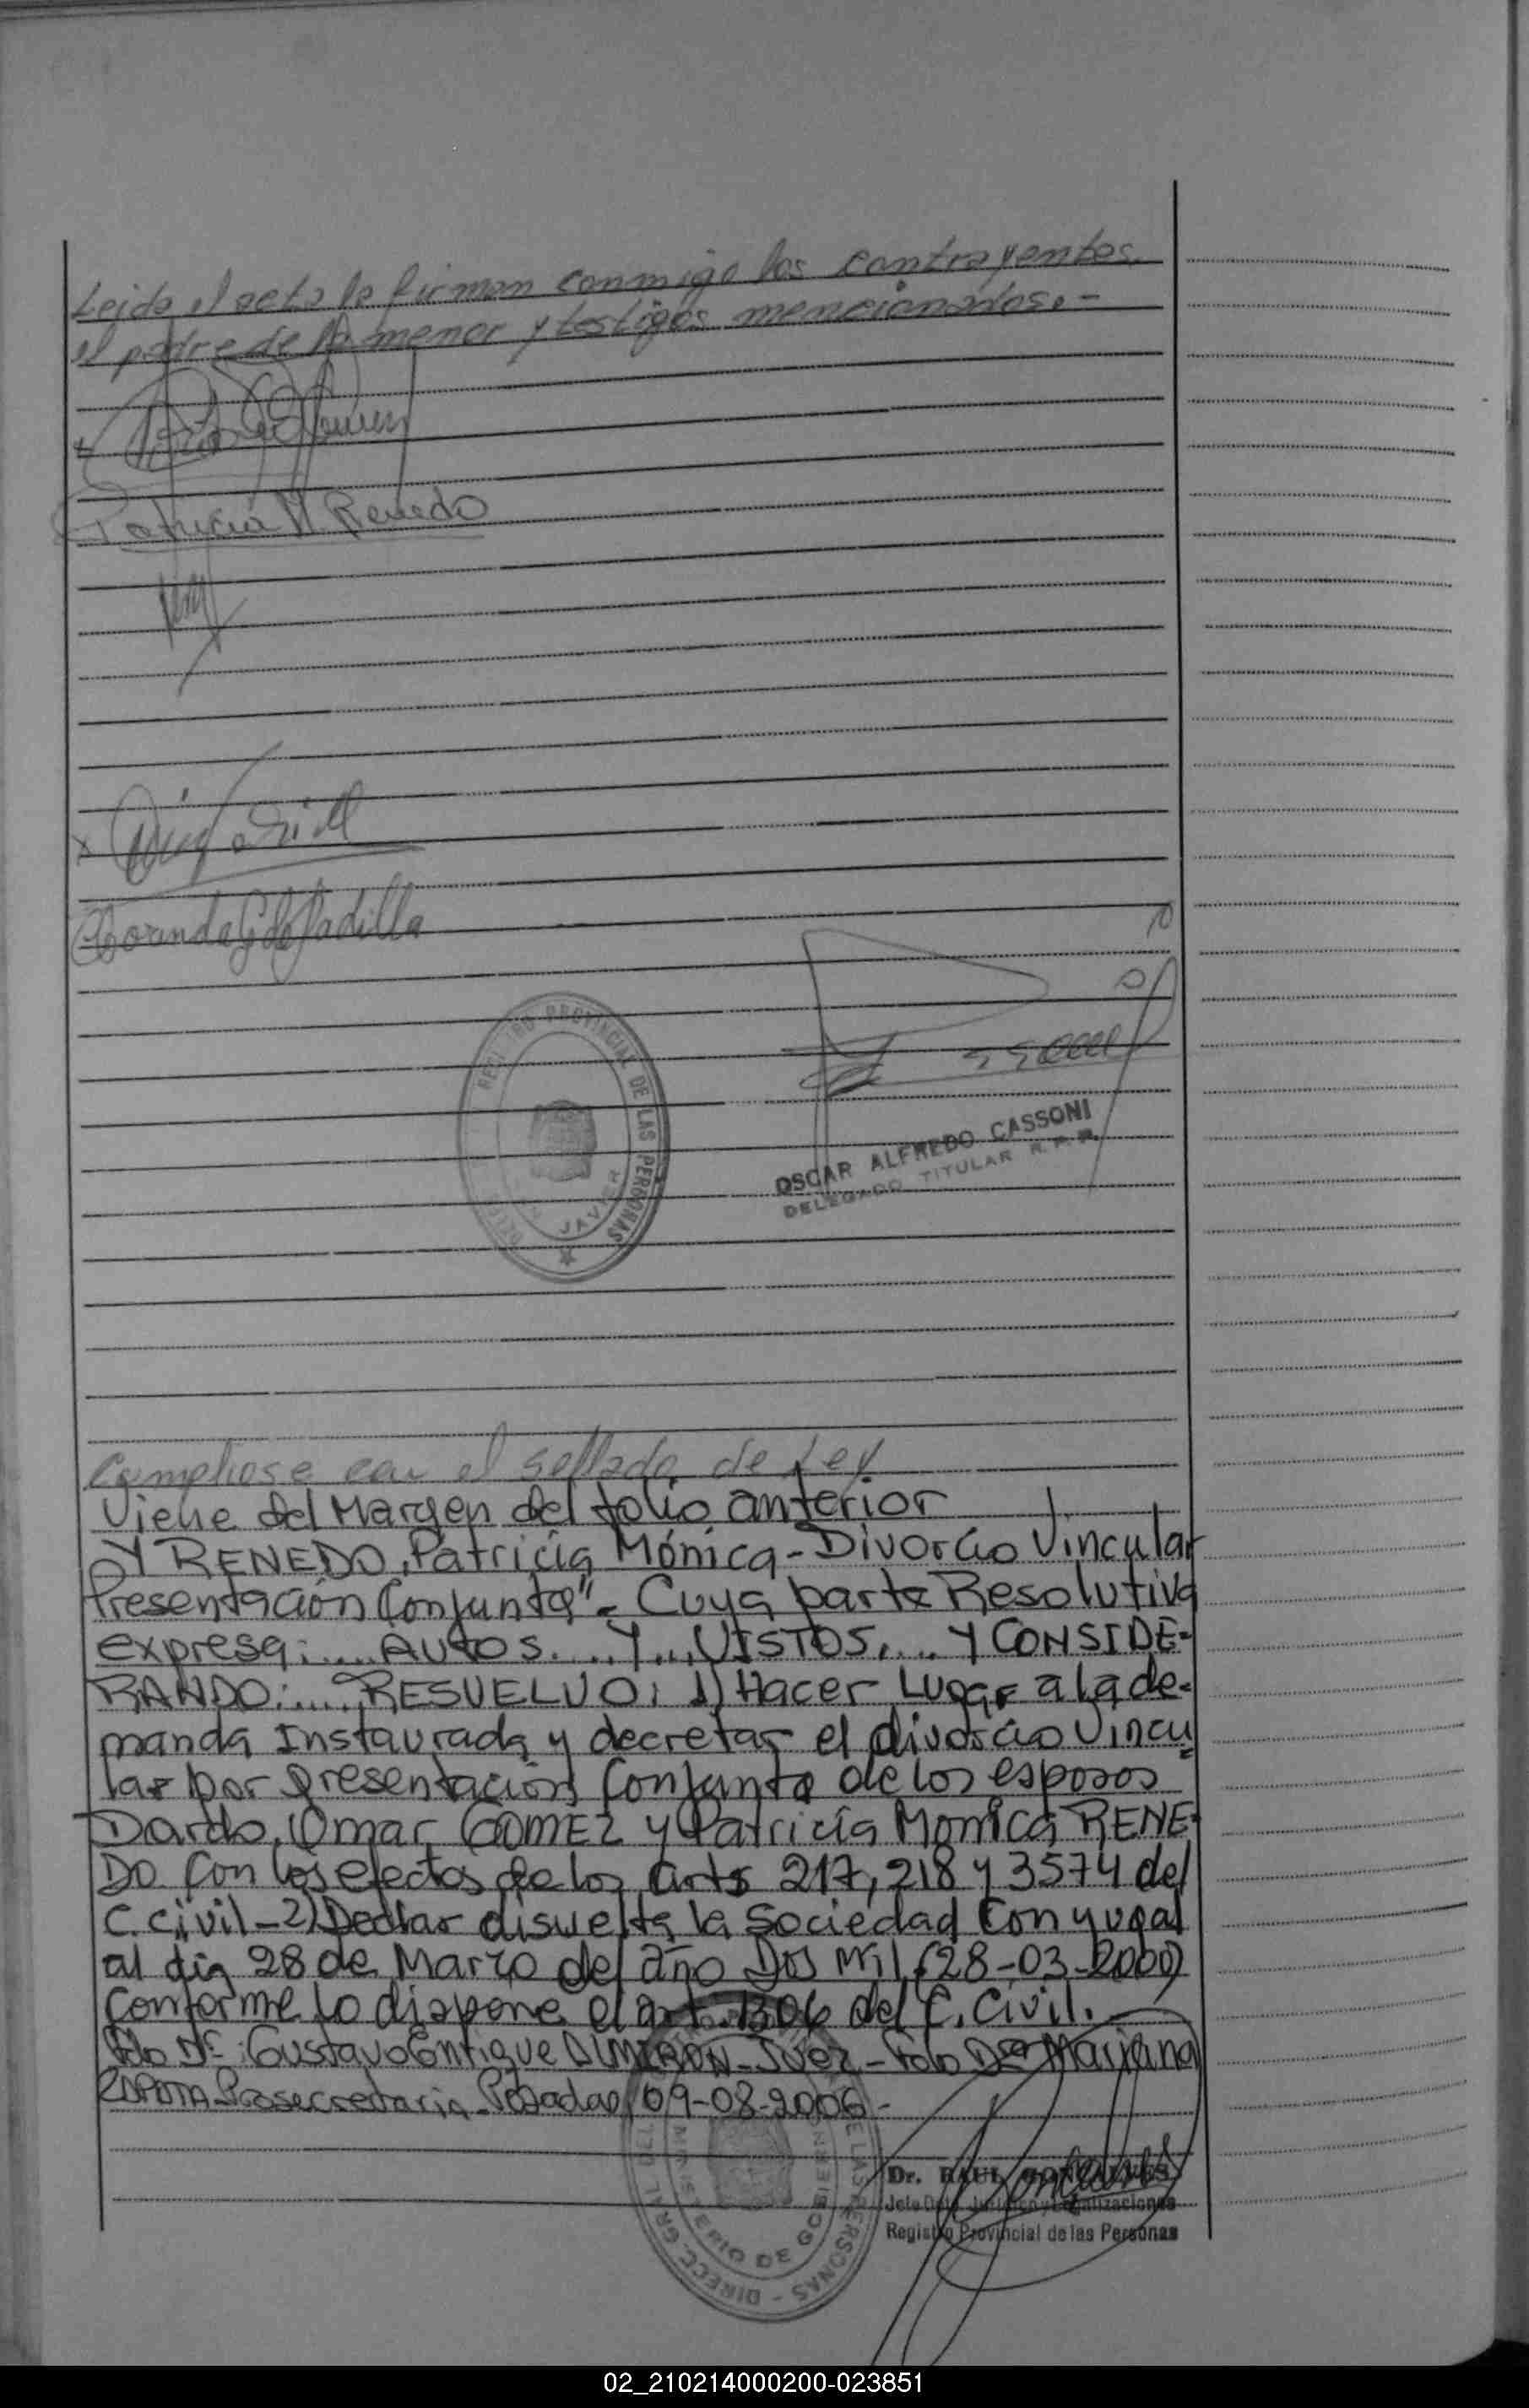 Leida el acta la firman conmigo los contrayentes,
el padre de la menor y testigos mencionados.-
Patricia M. Renedo
x
de Padilla
REGISTRO PROVINCIAL DE LAS PERSONAS
JAVIER
OSCAR ALFREDO CASSONI
DELEGADO TITULAR R. P. P.
Cumpliose con el sellado de Ley
Viene del Margen del folio anterior
Y RENEDO, Patricia Mónica - Divorcio Vincular
Presentación Conjunta"- Cuya parte Resolutiva
expresa:.... AUTOS.... Y... VISTOS,.... Y CONSIDE=
RANDO:.... RESUELVO: 1) Hacer Lugar a la de-
manda Instaurada y decretar el divorcio Vincu
lar por presentación Conjunta de los esposos
Dardo, Omar GOMEZ y Patricia Monica RENE-
DO Con los efectos de los arts 217, 218 y 3574 del
C. Civil - 2) Declar disuelta la Sociedad Conyugal
al dia 28 de Marzo del año Dos Mil (28-03-2000)
Conforme lo dispone el art. 1306 del C. Civil.
Fdo Dr: Gustavo Enrique - Juez - Fdo Dra Mariana
Prosecretaria - Posadas 09-08-2006 -
Dr. RAUL GONCALVES
Jefe Dpto. Jurídico y Legalizaciones
Registro Provincial de las Personas
MINISTERIO DE GOBIERNO
DE LAS PERSONAS - DIRECC. GRAL. DEL
02_210214000200-023851